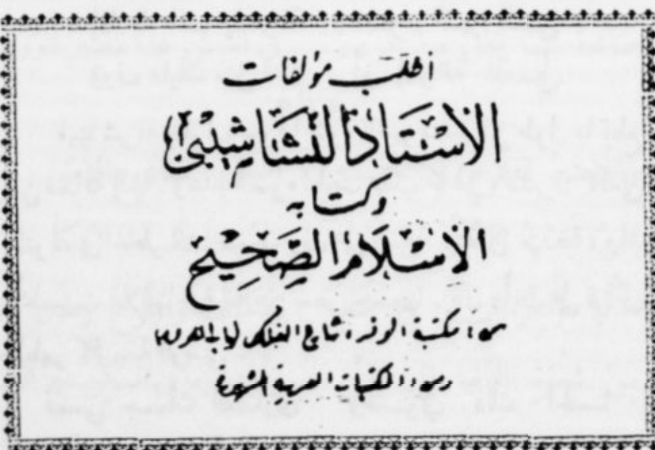 اطلب مؤلفات
الأستاذ النشاشيبي
وكتابه
الإسلام الصحيح
من: مكتبة الوفد، شارع الفلكي
ومن: المكتبات العربية الشهيرة